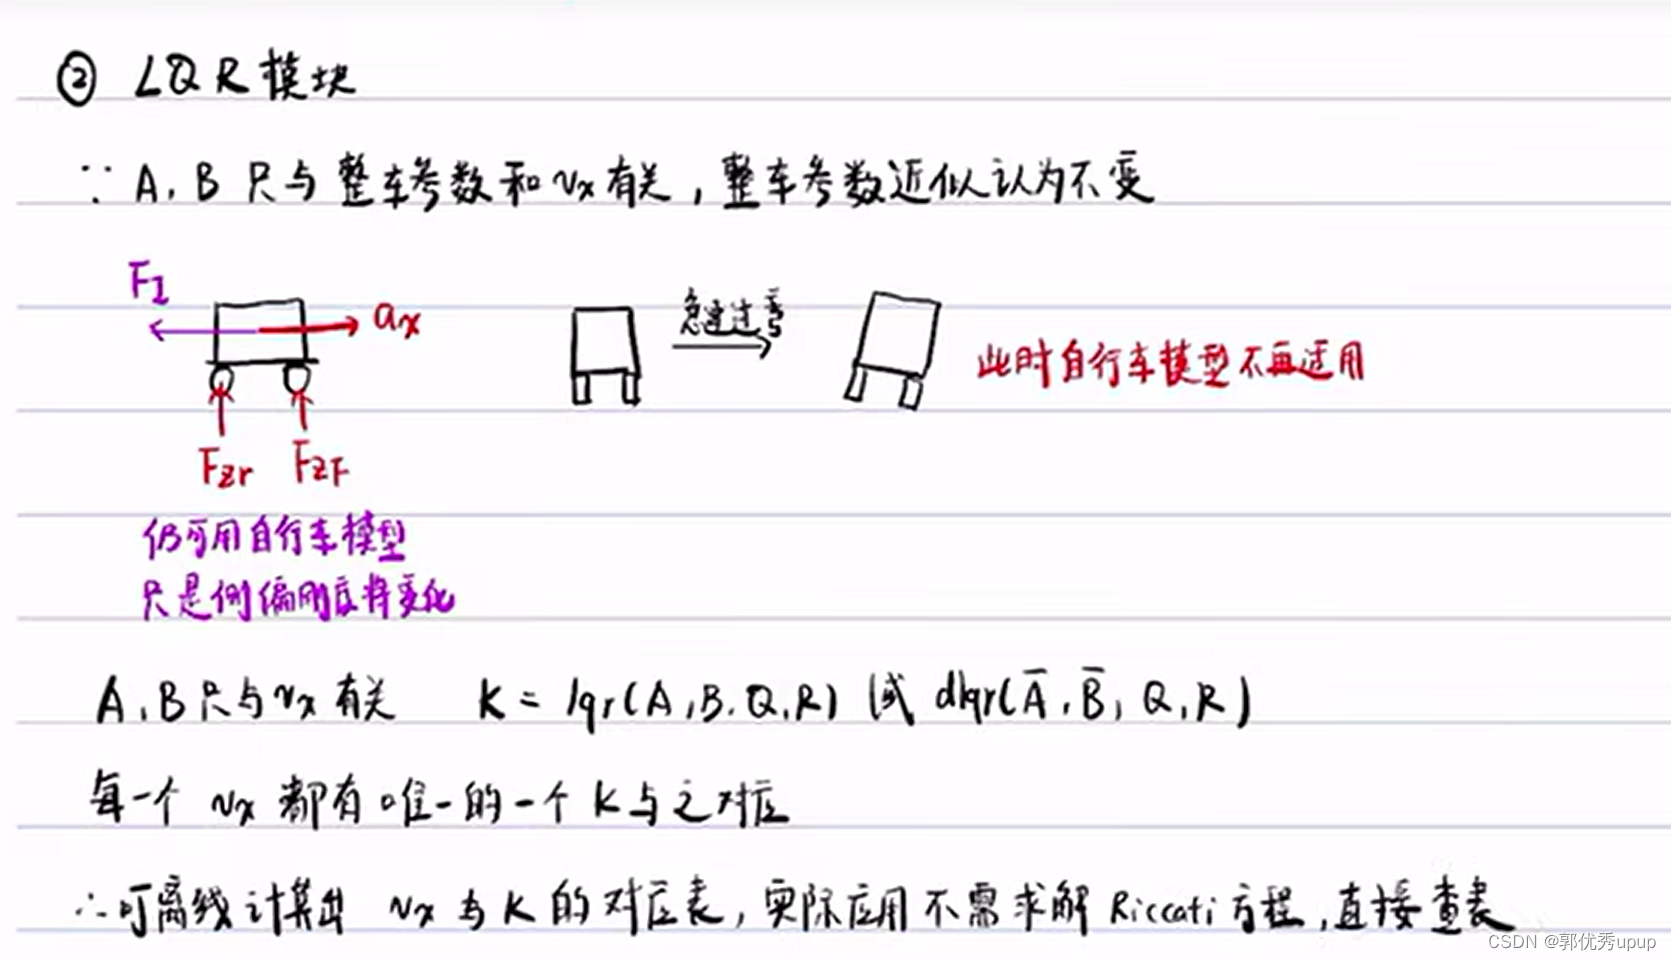 ② LQR模块
∵ A, B 只与整车参数和 vx 有关, 整车参数近似认为不变
FI
ax
急速过弯
此时自行车模型不再适用
Fzr FzF
仍可用自行车模型
只是侧偏刚度将变化
A, B只与vx有关 K = lqr(A, B, Q, R) 或 dlqr(Ā, B̄, Q, R)
每一个 vx 都有唯一的一个 K 与之对应
∴可离线计算出 vx 与 K 的对应表, 实际应用不需求解 Riccati 方程, 直接查表
CSDN @郭优秀upup